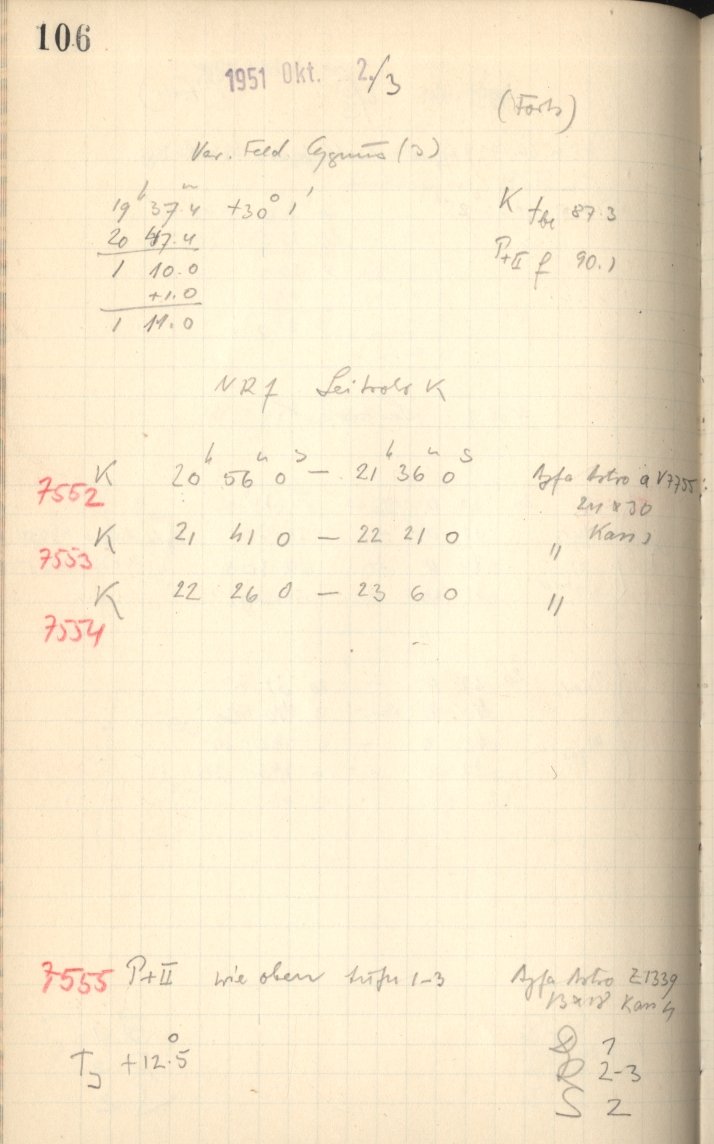 106
1951 Okt. 2./3
(Forts)
Var. Feld Cygnus (3)
19h 37m.4 +30° 1' K 87.3
20 47.4 P+II f 90.1
1 10.0
+1.0
1 11.0
NR 7 Leitrohr K
7552 K 20h 56m 0s – 21h 36m 0s Agfa Astro V7755
24 x 30
7553 K 21 41 0 – 22 21 0 " Kass
7554 K 22 26 0 – 23 6 0 "
7555 P+II wie oben 1-3 Agfa Astro Z1339
13 x 18 Kass 4
+12°.5
2-3
S 2